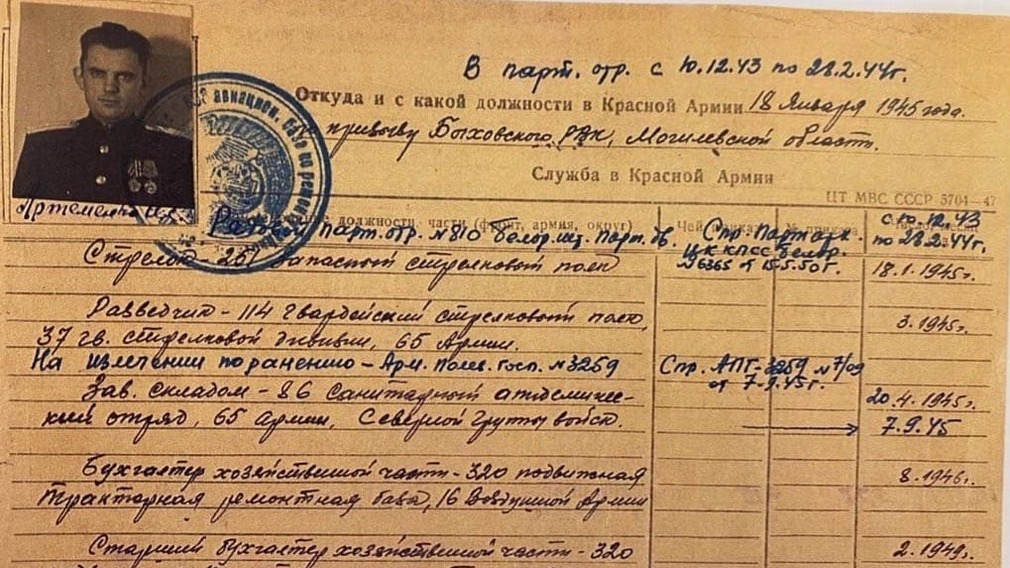 В парт. отр. с 10.12.43 по 28.2.44г.
Откуда и с какой должности в Красной Армии 18 Января 1945 года.
призыву Быховского РВК, Могилевской области.
Служба в Красной Армии
ЦТ МВС СССР 5704—47
Артеменко
должности, части (фронт, армия, округ)
Чей
с 10.12.43
по 28.2.44г.
Рядовой Парт. отр. №810 Белор. шт. Парт. дв.
Спр. Парт арх.
ЦК КПСС Белор.
№6365 от 15.5.50г.
Стрелок - 251 Запасной стрелковый полк
18.1.1945г.
Разведчик - 114 гвардейский стрелковой полк,
3.1945г.
37 гв. стрелковой дивизии, 65 Армии.
На излечении по ранению - Арм. Полев. госп. №3259
Спр. АПГ-3259 №7/09
от 7-9.45г.
Зав. складом - 86 Санитарный эпидемичес-
20.4.1945г.
кий отряд, 65 Армии, Северной Группы войск.
7.9.45
Бухгалтер хозяйственной части - 320 подвижная
8.1946г.
тракторная ремонтная база, 16 Воздушной Армии
Старший бухгалтер хозяйственной части - 320
2.1949г.